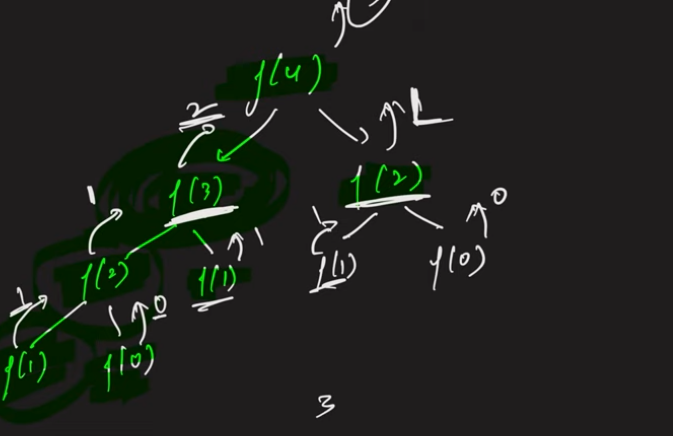 f(4)
2
f(3) f(2) 0
1 1 1
f(2) f(1) f(1) f(0)
1 0
f(1) f(0)
3